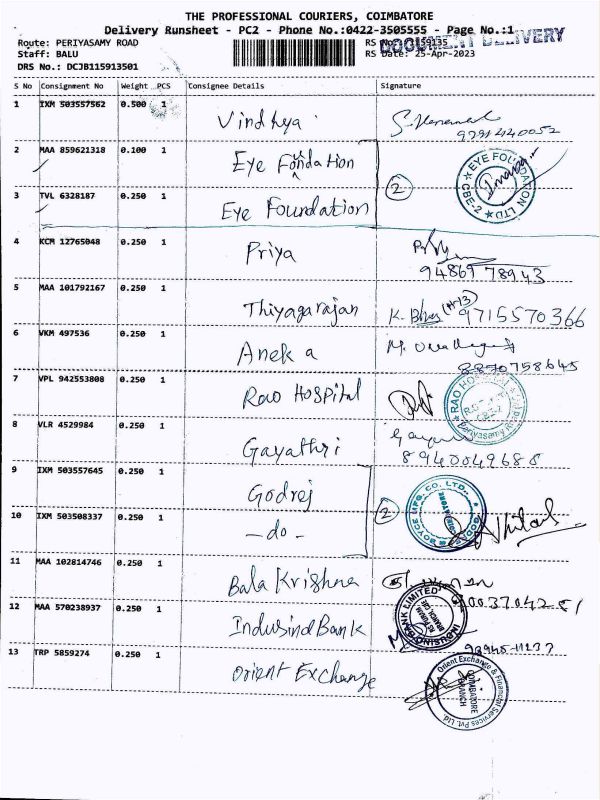 THE PROFESSIONAL COURIERS, COIMBATORE
Delivery Runsheet - PC2 - Phone No.:0422-3505555 - Page No.:1
Route: PERIYASAMY ROAD
RS No.: 1159135
DOCUMENT DELIVERY
Staff: BALU
RS Date: 25-Apr-2023
DRS No.: DCJB115913501
S No Consignment No Weight PCS Consignee Details Signature
1 IXM 503557562 0.500 1 Vindhya
9791440052
2 MAA 859621318 0.100 1 Eye Foundation
2
EYE FOUNDATION LTD
CBE-2
3 TVL 6328187 0.250 1 Eye Foundation
4 KCM 12765048 0.250 1 Priya
94869 78943
5 MAA 101792167 0.250 1 Thiyagarajan K. 9715570366
6 VKM 497536 0.250 1 Aneka M.
8870758645
7 VPL 942553808 0.250 1 Rao Hospital
RAO HOSPITAL
Periyasamy
8 VLR 4529984 0.250 1 Gayathri
8940049688
9 IXM 503557645 0.250 1 Godrej
2
BOYCE MFG. CO. LTD.
10 IXM 503508337 0.250 1 -do-
11 MAA 102814746 0.250 1 Bala Krishna
12 MAA 570238937 0.250 1 Indusind Bank
INDUSIND BANK LIMITED
13 TRP 5859274 0.250 1 Orient Exchange
Orient Exchange & Financial Services Pvt. Ltd.
COIMBATORE
BRANCH